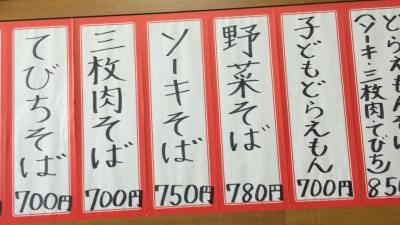 てびちそば
700円
三枚肉そば
700円
ソーキそば
750円
野菜そば
780円
子どもどらえもん
700円
どらえもんそば
(ソーキ・三枚肉・てびち)
850